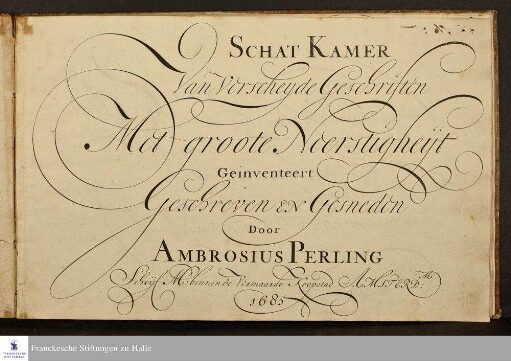 SCHAT KAMER
Van Verscheyde Geschriften
Met groote Neerstigheijt
Geinventeert
Geschreven EN Gesneden
Door
AMBROSIUS PERLING
Schrijf Mr: binnen de Vermaarde Koopstad AMSTERDM:
1685
Franckesche Stiftungen zu Halle
FRANCKESCHE STIFTUNGEN